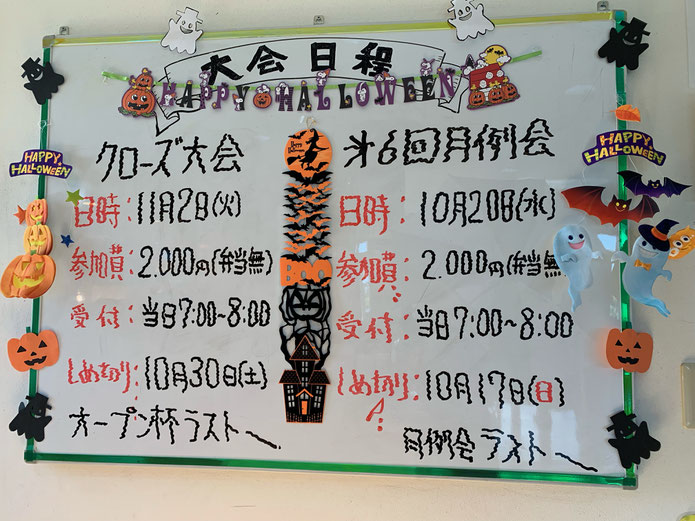 大会日程
HAPPY HALLOWEEN
HAPPY
HALLOWEEN
クローズ大会
日時:11月2日(火)
参加費:2.000円(弁当無)
受付:当日7:00~8:00
しめきり:10月30日(土)
オープン杯ラスト〜
Happy
Halloween
BOO
才6回月例会
日時:10月20日(水)
参加費:2.000円(弁当無)
受付:当日7:00~8:00
しめきり:10月17日(日)
月例会ラスト〜
HAPPY
HALLOWEEN